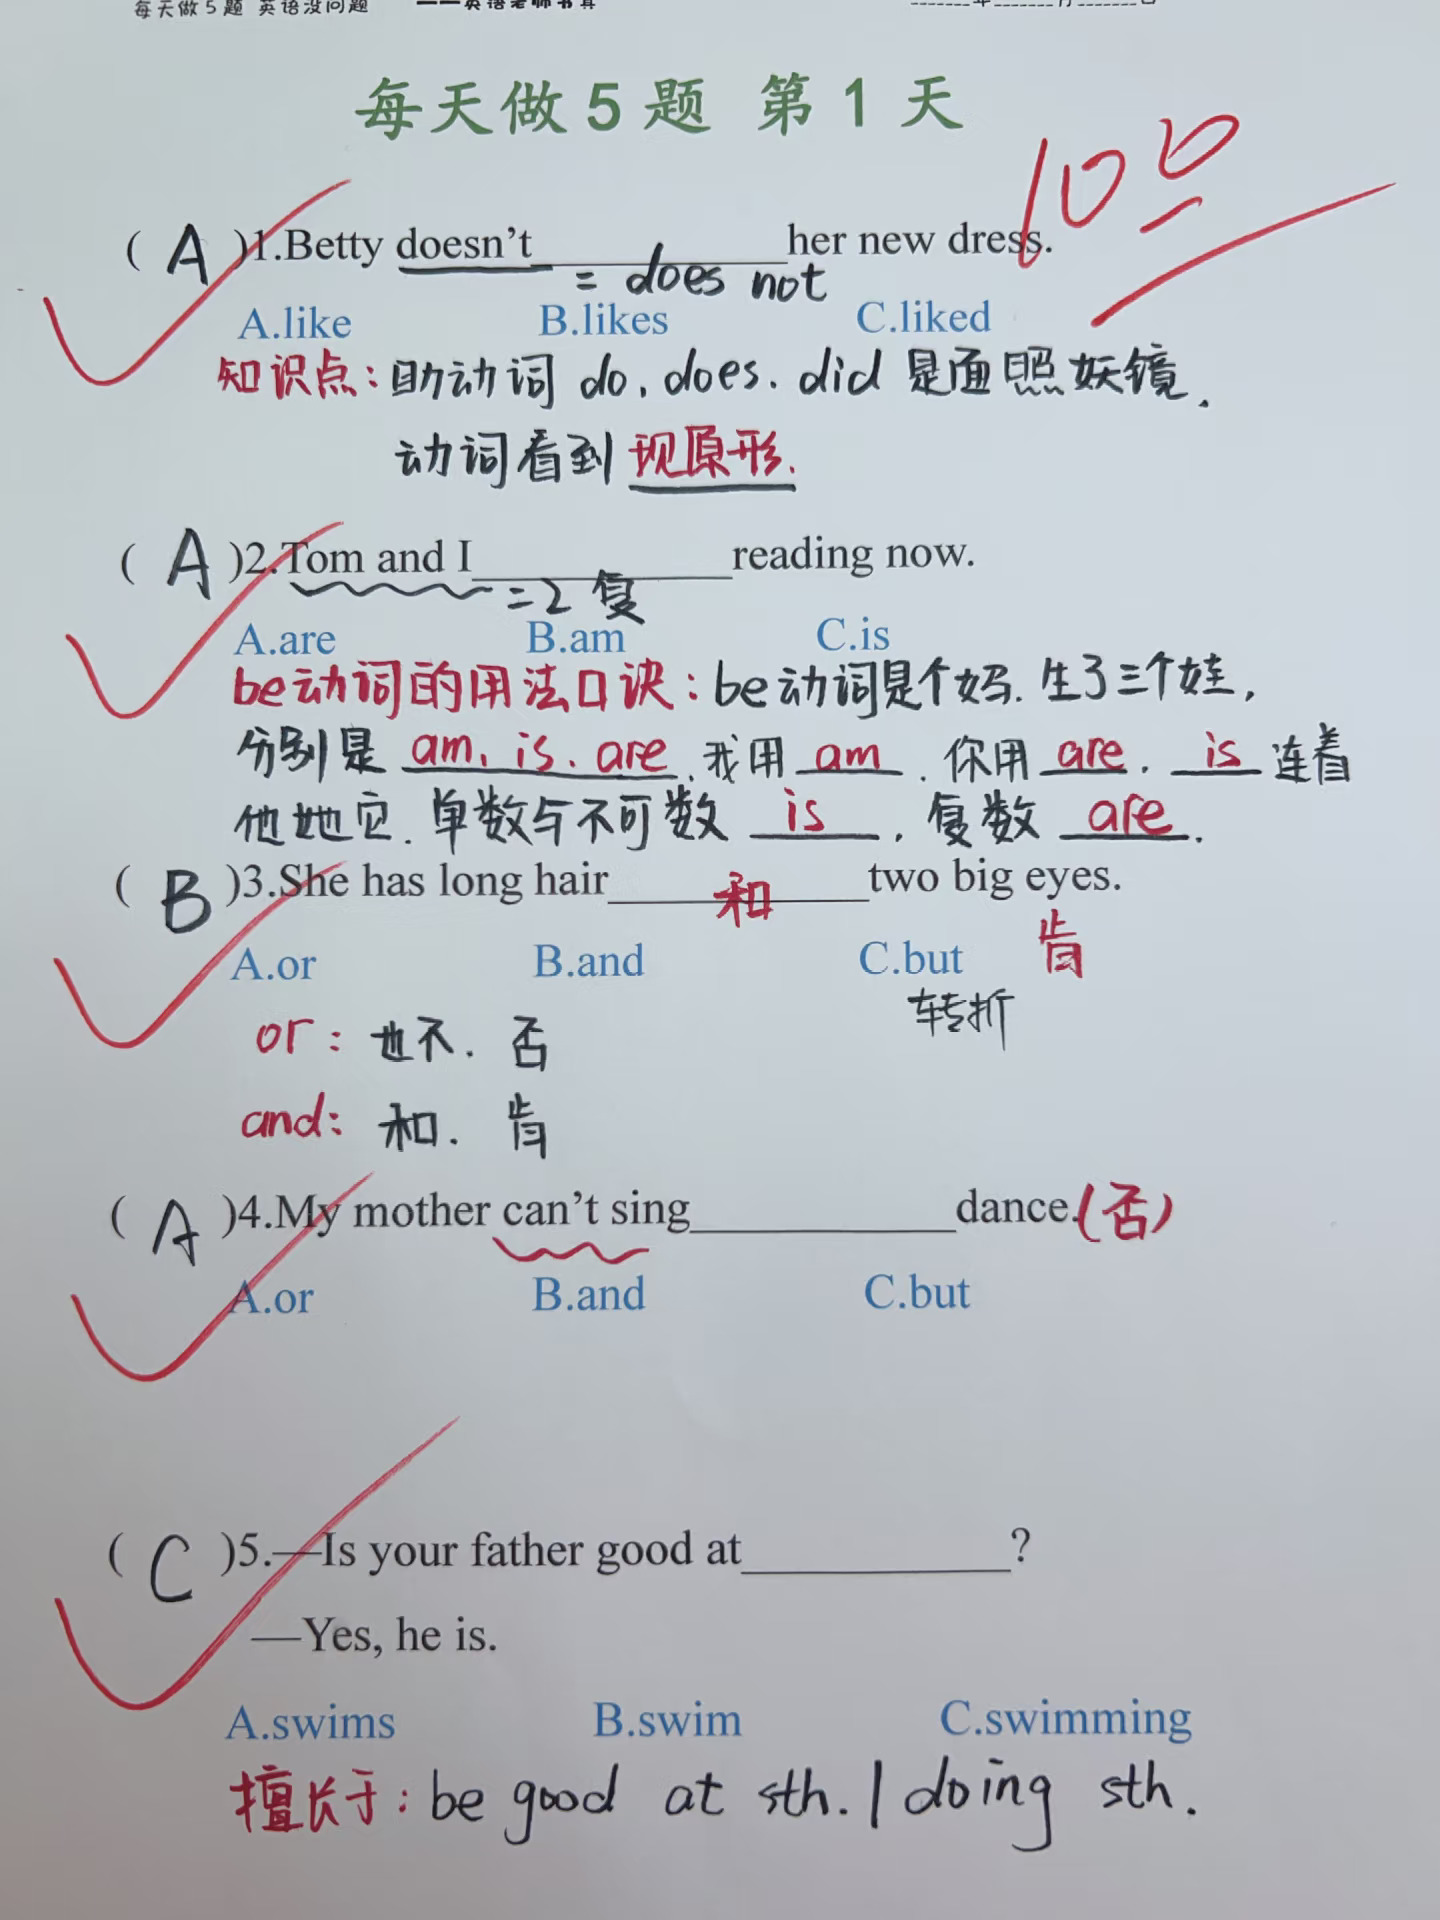 每天做5题 英语没问题
每天做5题 第1天
100
( A )1.Betty doesn't__________her new dress.
= does not
A.like B.likes C.liked
知识点:助动词 do、does、did 是面照妖镜.
动词看到现原形.
( A )2.Tom and I__________reading now.
=2 复
A.are B.am C.is
be动词的用法口诀:be动词是个妈.生了三个娃,
分别是 am、is、are.我用 am . 你用 are . is 连着
他她它.单数与不可数 is , 复数 are .
( B )3.She has long hair 和 two big eyes.
肯
A.or B.and C.but
转折
or: 也不. 否
and: 和. 肯
( A )4.My mother can't sing__________dance.(否)
A.or B.and C.but
( C )5.—Is your father good at__________?
—Yes, he is.
A.swims B.swim C.swimming
擅长于:be good at sth. / doing sth.